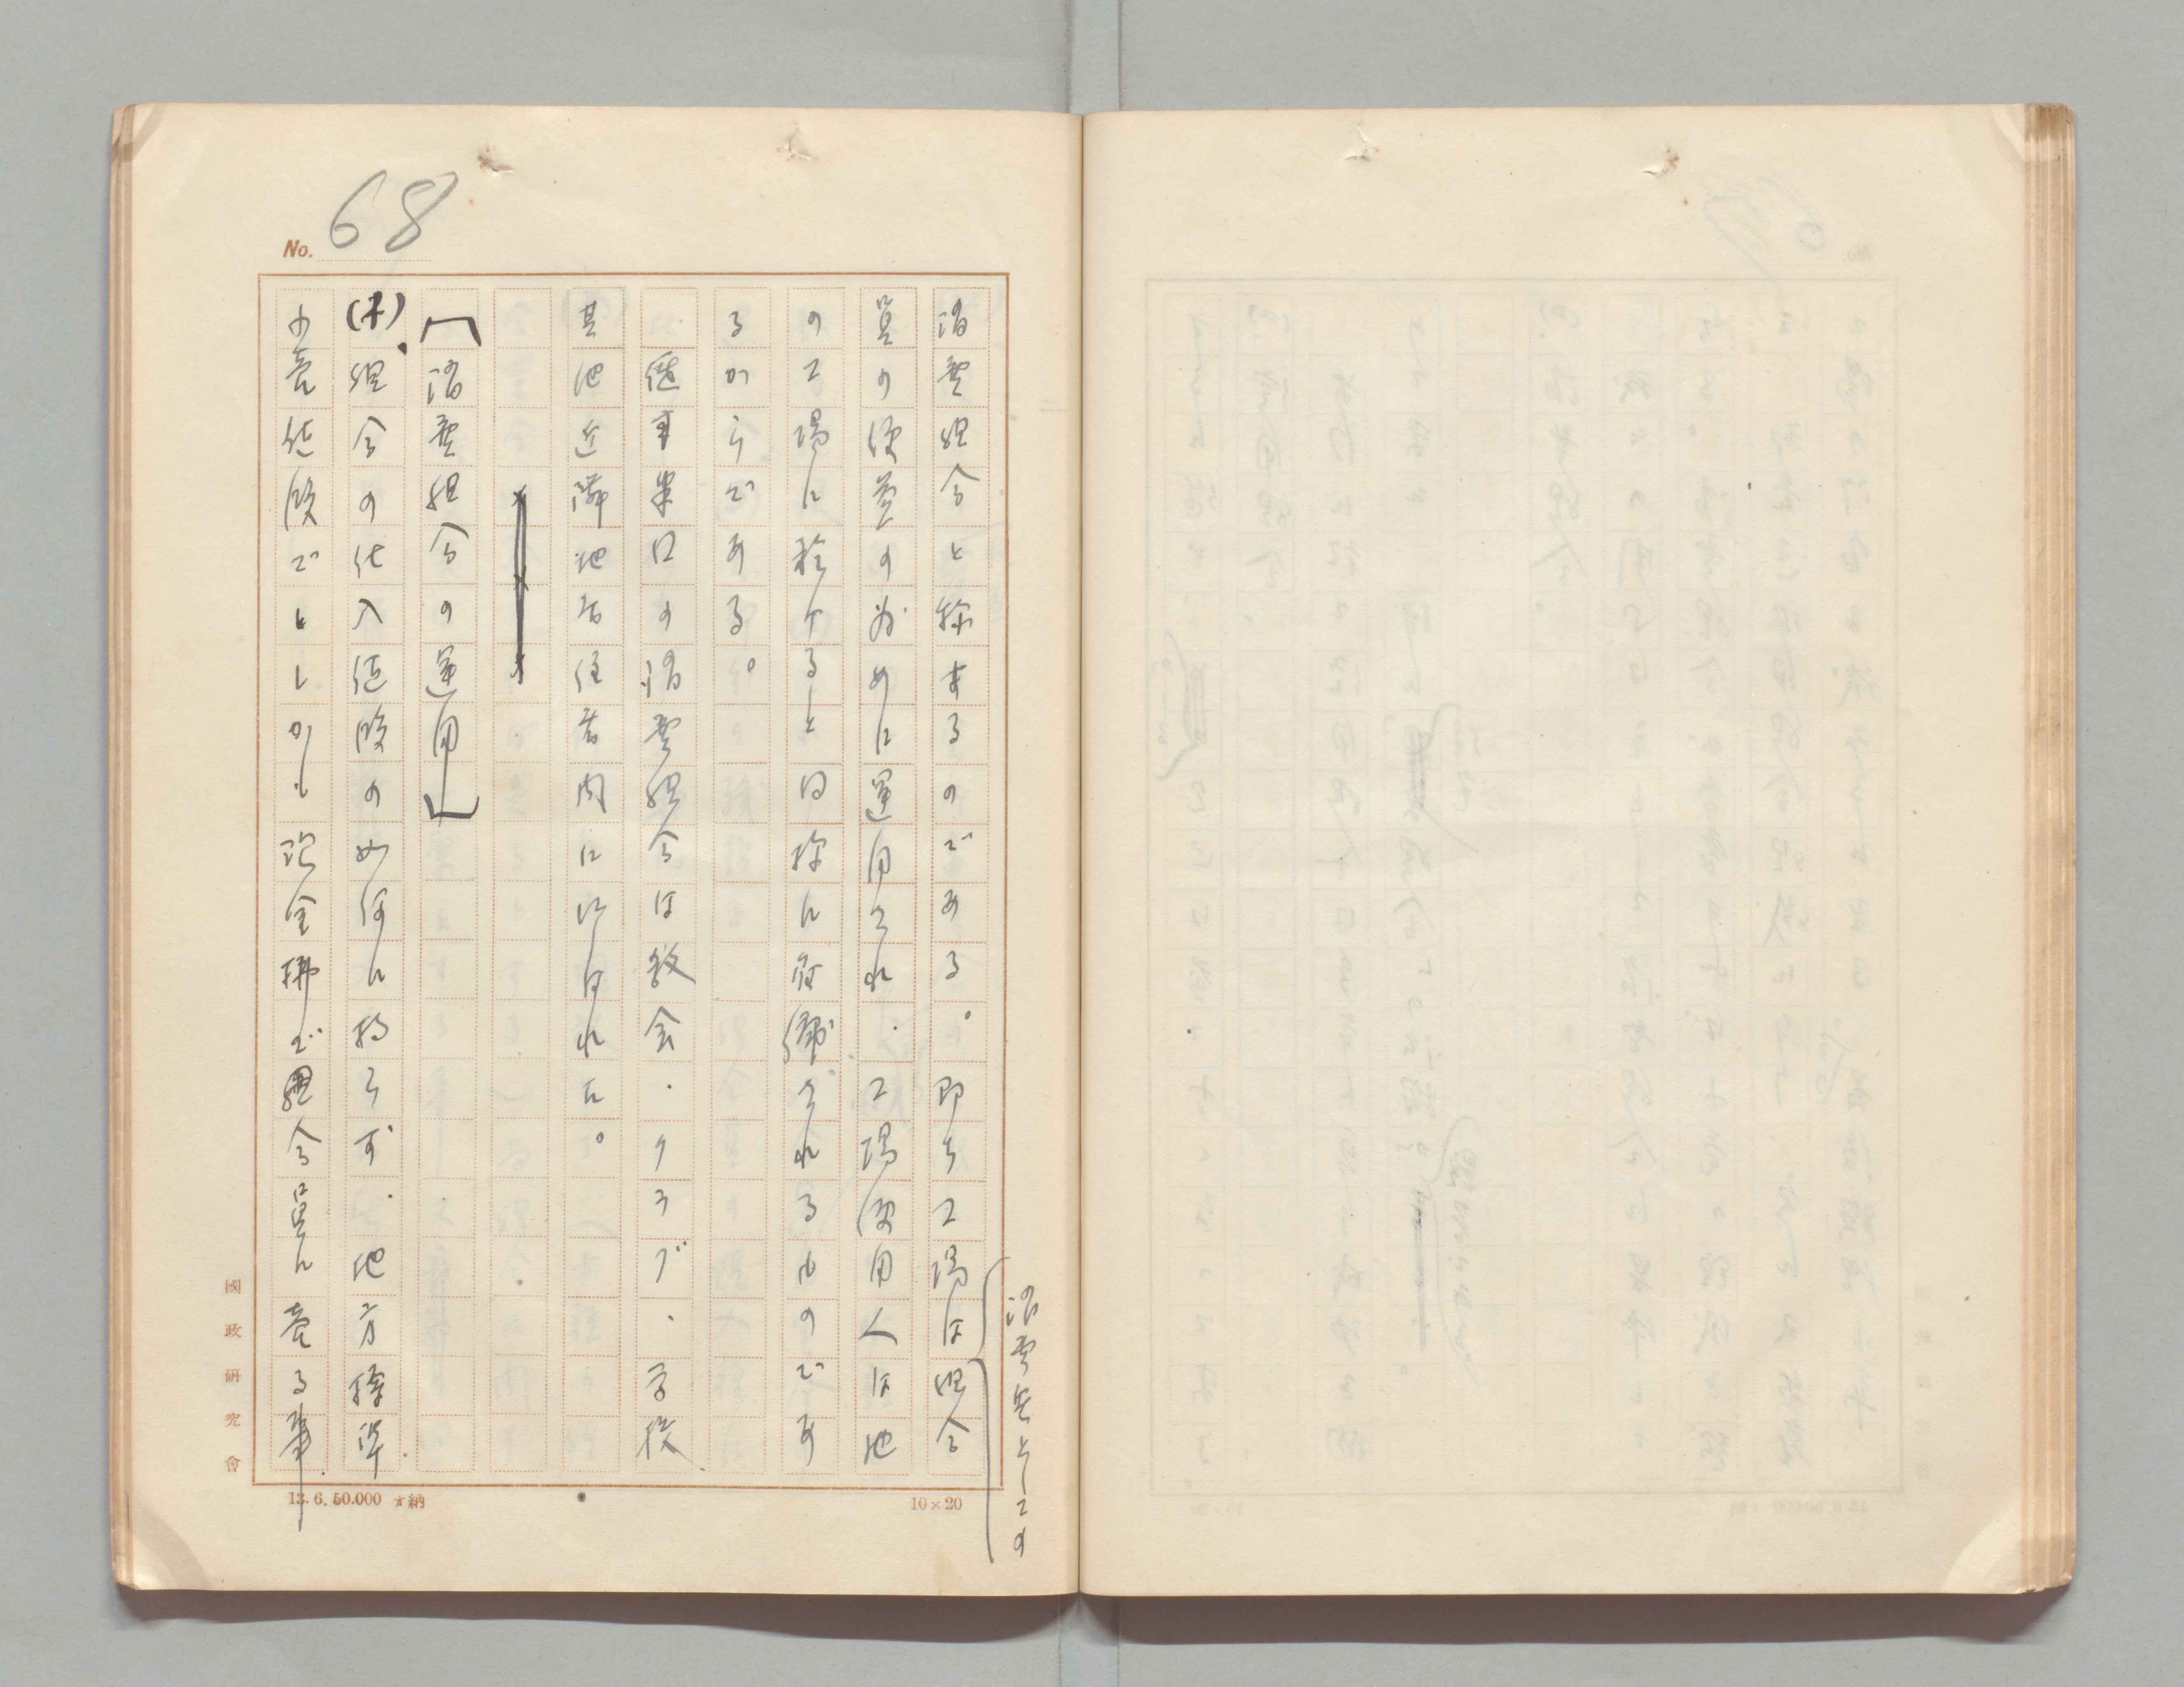 No. 68
消費組合と称するのである。即ち工場は組合
消費者としての
員の便益の為めに運用され、工場使用人は他
の工場に於けると同様に守護されるものであ
るからである。
従事業口の消費組合は教会・クラブ・学校、
其他近隣地居住者内に行はれた。
「消費組合の運用」
(イ)、組合の仕入値段の如何に拘らず、地方標準
小売値段でしかも現金払で組合員に売る事、
國政研究會
13.6.50.000 納
10×20